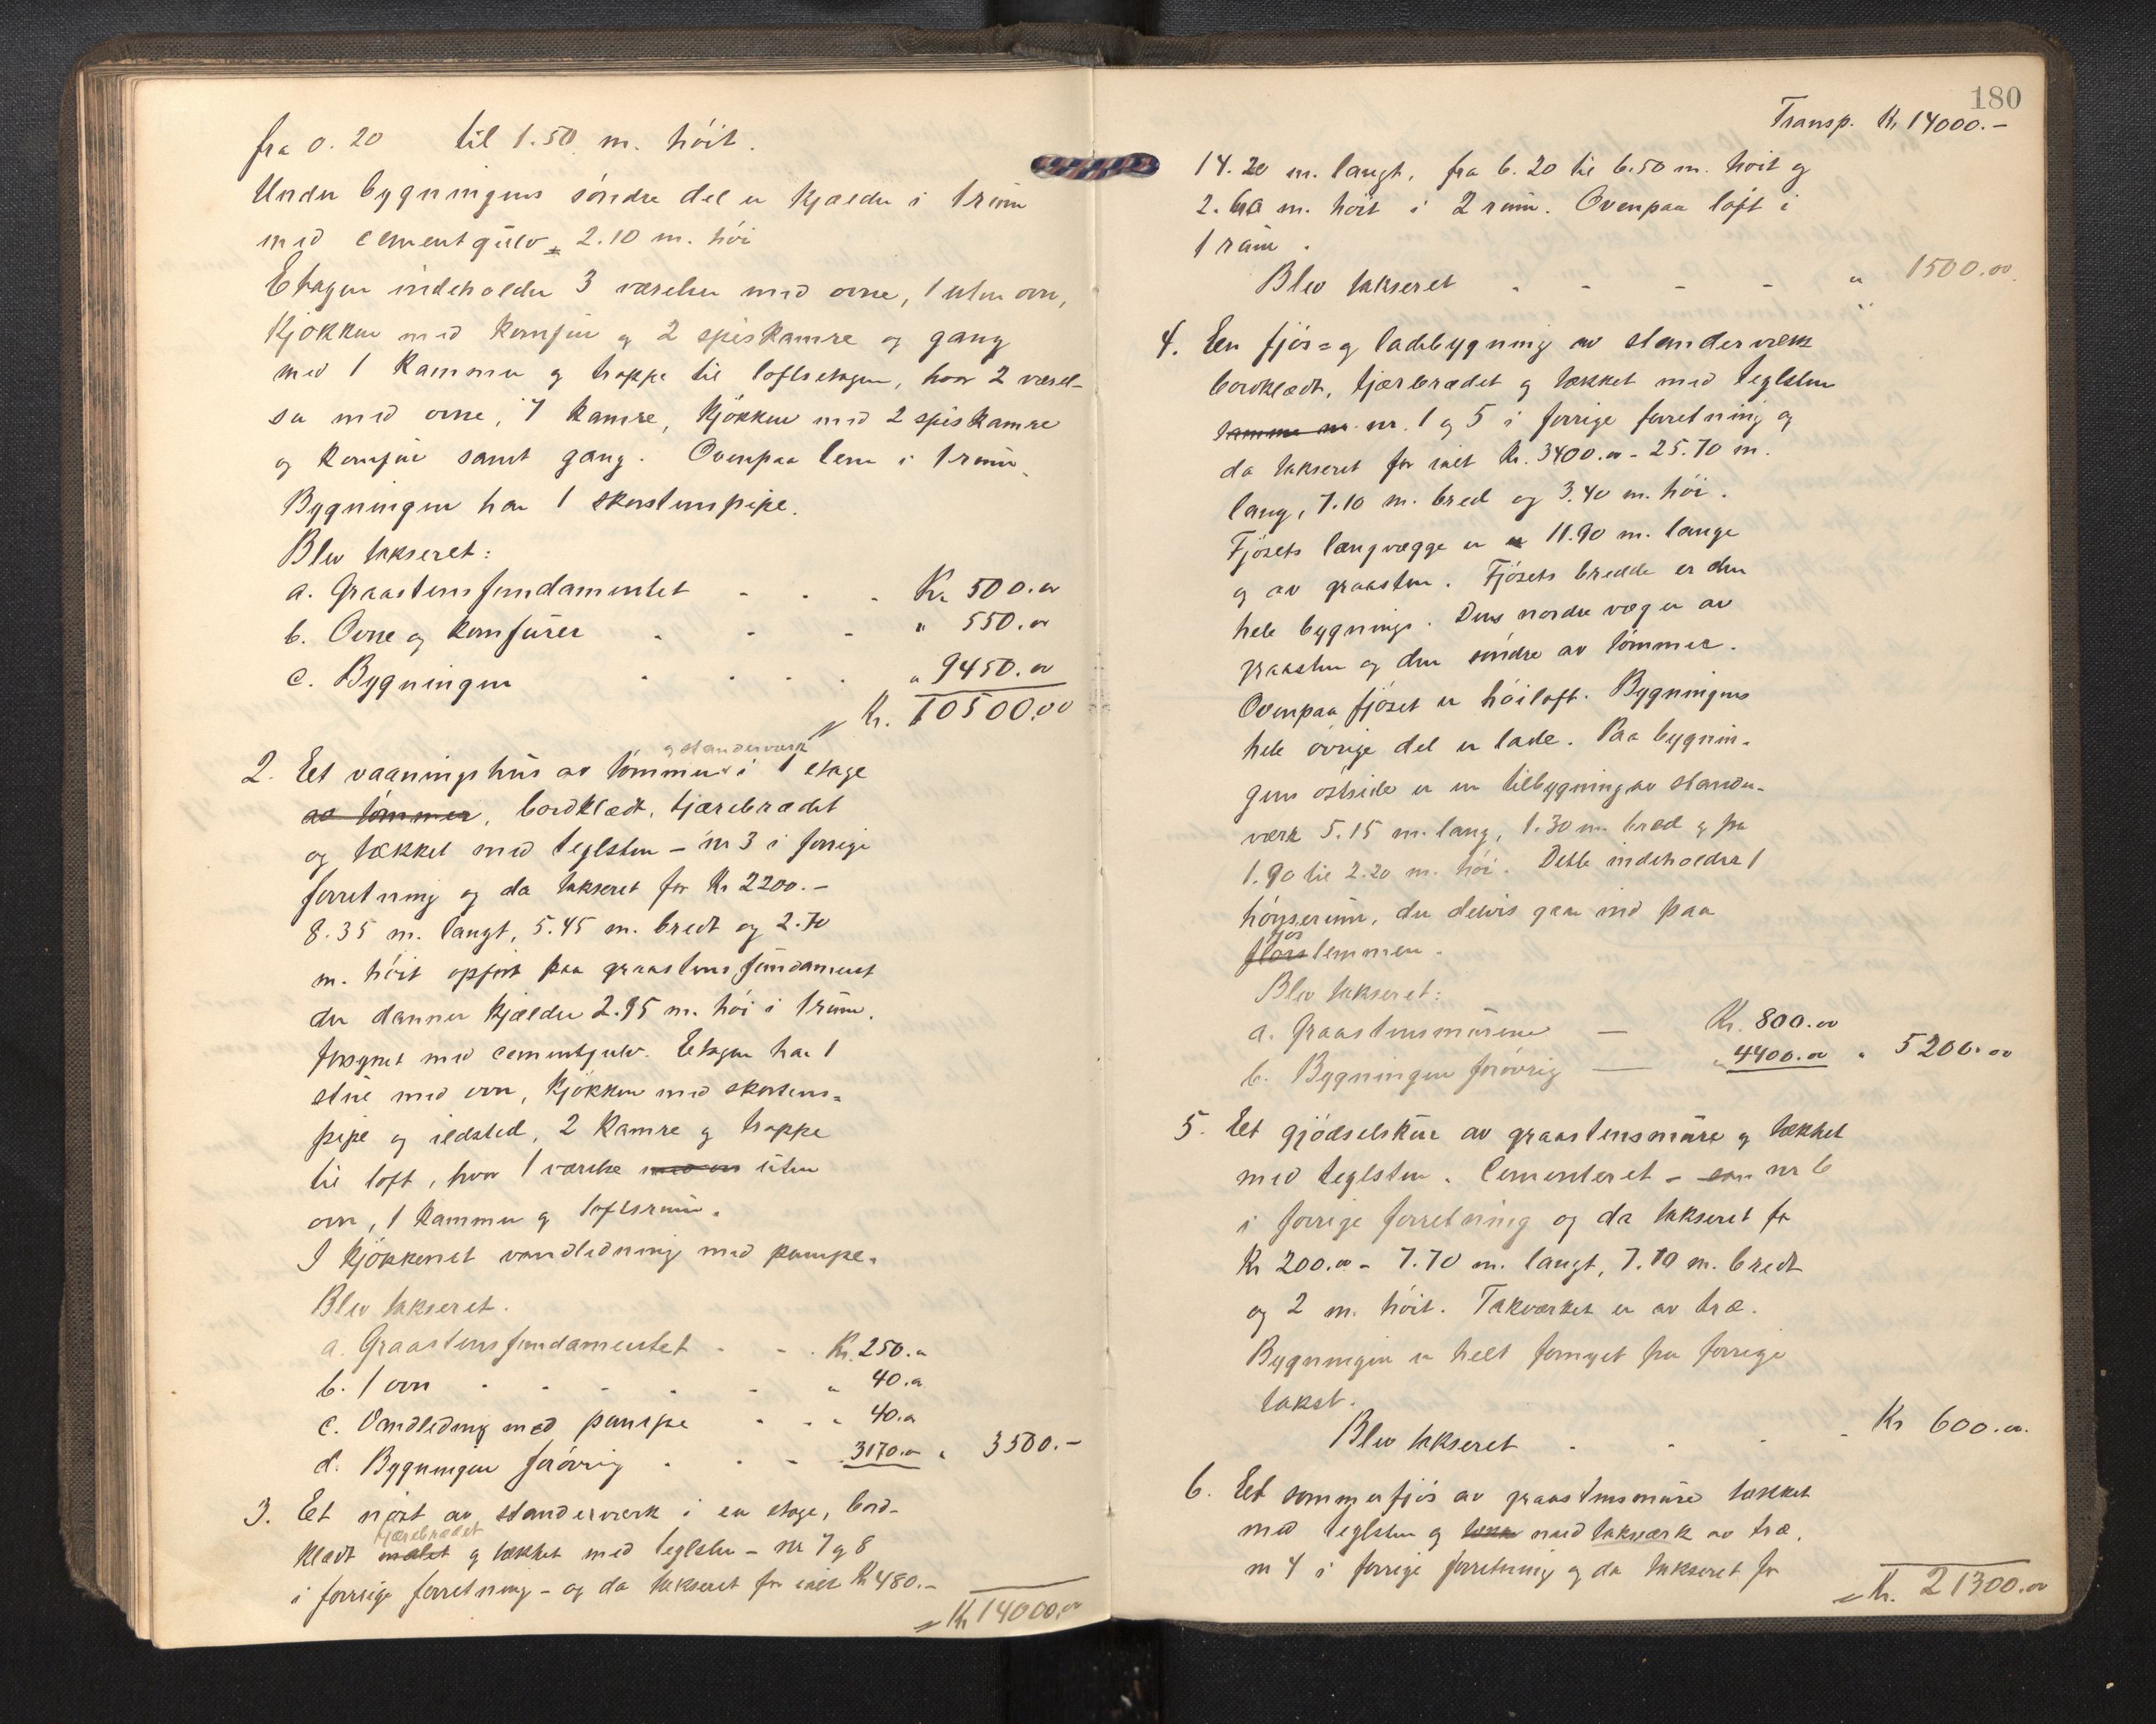 fra 0.20 til 1.50 m. höit.
Under bygningens söndre del er kjælder i 1 rum
med cementgulv 2.10 m. höi
Etagen indeholder 3 værelser med ovne, 1 uten ovn,
kjökken med komfur og 2 spiskamre og gang
med 1 kammer og trappe til loftsetagen, hvor 2 værel-
ser med ovne, 7 kamre, kjökken med 2 spiskamre
og komfur samt gang. Ovenpaa lem i 1 rum.
Bygningen har 1 skorstenspipe.
Blev takseret:
a. Graastensfundamentet - - - Kr. 500.00
b. Ovne og komfurer - - - " 550.00
c. Bygningen - - - - " 9450.00
Kr. 10500.00
og standerværk
2. Eet vaaningshus av tömmer i 1 etage
av tömmer, bordklædt, tjærebrædet
og tækket med teglsten - nr 3 i forrige
forretning og da takseret for Kr 2200.-
8.35 m. langt, 5.45 m. bredt og 2.70
m. höit opfört paa graastensfundament
der danner kjælder 2.95 m. höi i 1 rum,
forsynet med cementgulv. Etagen har 1
stue med ovn, kjökken med skorstens-
pipe og ildsted, 2 kamre og trappe
til loft, hvor 1 værelse med ovn uten
ovn, 1 kammer og loftsrum.
I kjökkenet vandledning med pumpe.
Blev takseret.
a. Graastensfundamentet - - Kr. 250.00
b. 1 ovn - - - - - " 40.00
c. Vandledning med pumpe - - " 40.00
d. Bygningen forövrig - - - 3170.00 " 3500.-
3. Et nöst av standerværk i en etage, bord-
tjærebrædet
klædt malet og tækket med teglsten - nr 7 og 8
i forrige forretning - og da takseret for ialt Kr 480.-
Kr 14000.00
180
Transp. Kr 14000.-
14.20 m. langt, fra 6.20 til 6.50 m. höit og
2.60 m. höit i 2 rum. Ovenpaa loft i
1 rum.
Blev takseret - - - - " 1500.00
4. Een fjös- og ladebygning av standerværk
bordklædt, tjærebrædet og tækket med teglsten
samme nr nr. 1 og 5 i forrige forretning og
da takseret for ialt Kr. 3400.00 - 25.70 m.
lang, 7.10 m. bred og 3.40 m. höi.
Fjösets langvægge er 11.90 m. lange
og av graasten. Fjösets bredde er den
hele bygnings. Dens nordre væg er av
graasten og den söndre av tömmer.
Ovenpaa fjöset er höiloft. Bygningens
hele övrige del er lade. Paa bygnin-
gens östside er en tilbygning av stander-
værk 5.15 m. lang, 1.30 m. bred og fra
1.90 til 2.20 m. höi. Dette indeholder 1
hönserum, der delvis gaar ind paa
fjös
flors lemmen.
Blev takseret:
a. Graastensmurene — Kr. 800.00
b. Bygningen forövrig — " 4400.00 " 5200.00
5. Eet gjödselskur av graastensmure og tækket
med teglsten. Cementeret - som nr 6
i forrige forretning og da takseret for
Kr 200.00 - 7.70 m. langt, 7.10 m. bredt
og 2 m. höit. Takværket er av træ.
Bygningen er helt fornyet fra forrige
takst.
Blev takseret - - - Kr 600.00
6. Eet sommerfjös av graastensmure tækket
med teglsten og med takværk av træ,
nr 4 i forrige forretning og da takseret for
Kr. 21300.00